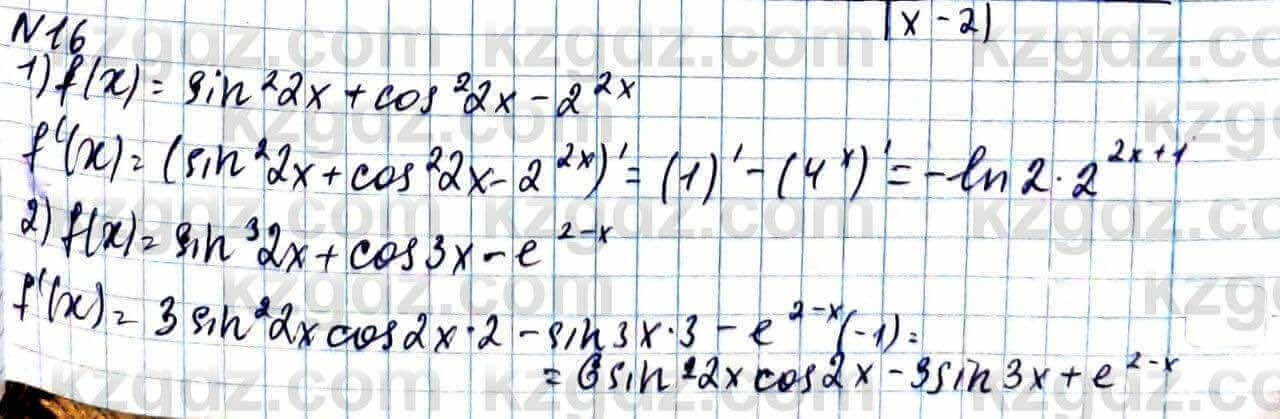 |x-2|
N16
1) f(x) = sin²2x + cos²2x - 2^{2x}
f'(x) = (sin²2x + cos²2x - 2^{2x})' = (1)' - (4^x)' = -ln2 · 2^{2x+1}
2) f(x) = sin³2x + cos3x - e^{2-x}
f'(x) = 3sin²2x cos2x · 2 - sin3x · 3 - e^{2-x}(-1) =
= 6sin²2x cos2x - 3sin3x + e^{2-x}